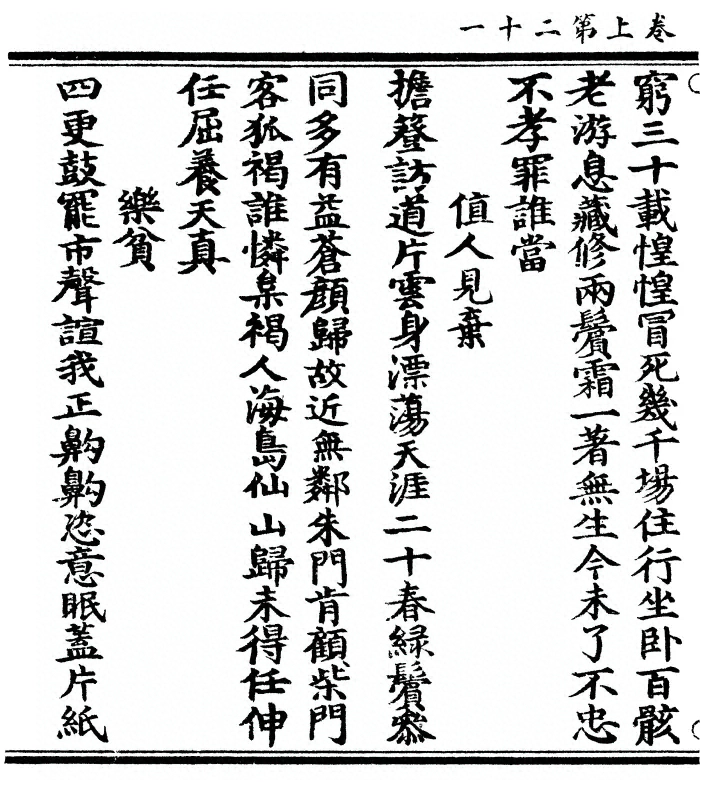 卷上第二十一
窮三十載惶惶冒死幾千場住行坐卧百骸
老游息藏修兩鬢霜一著無生今未了不忠
不孝罪誰當
值人見棄
擔簦訪道片雲身漂蕩天涯二十春緑鬢叅
同多有益蒼顔歸故近無鄰朱門肯顧柴門
客狐裼誰憐枲裼人海島仙山歸未得任伸
任屈養天真
樂貧
四更鼓罷市聲諠我正齁齁恣意眠蓋片紙